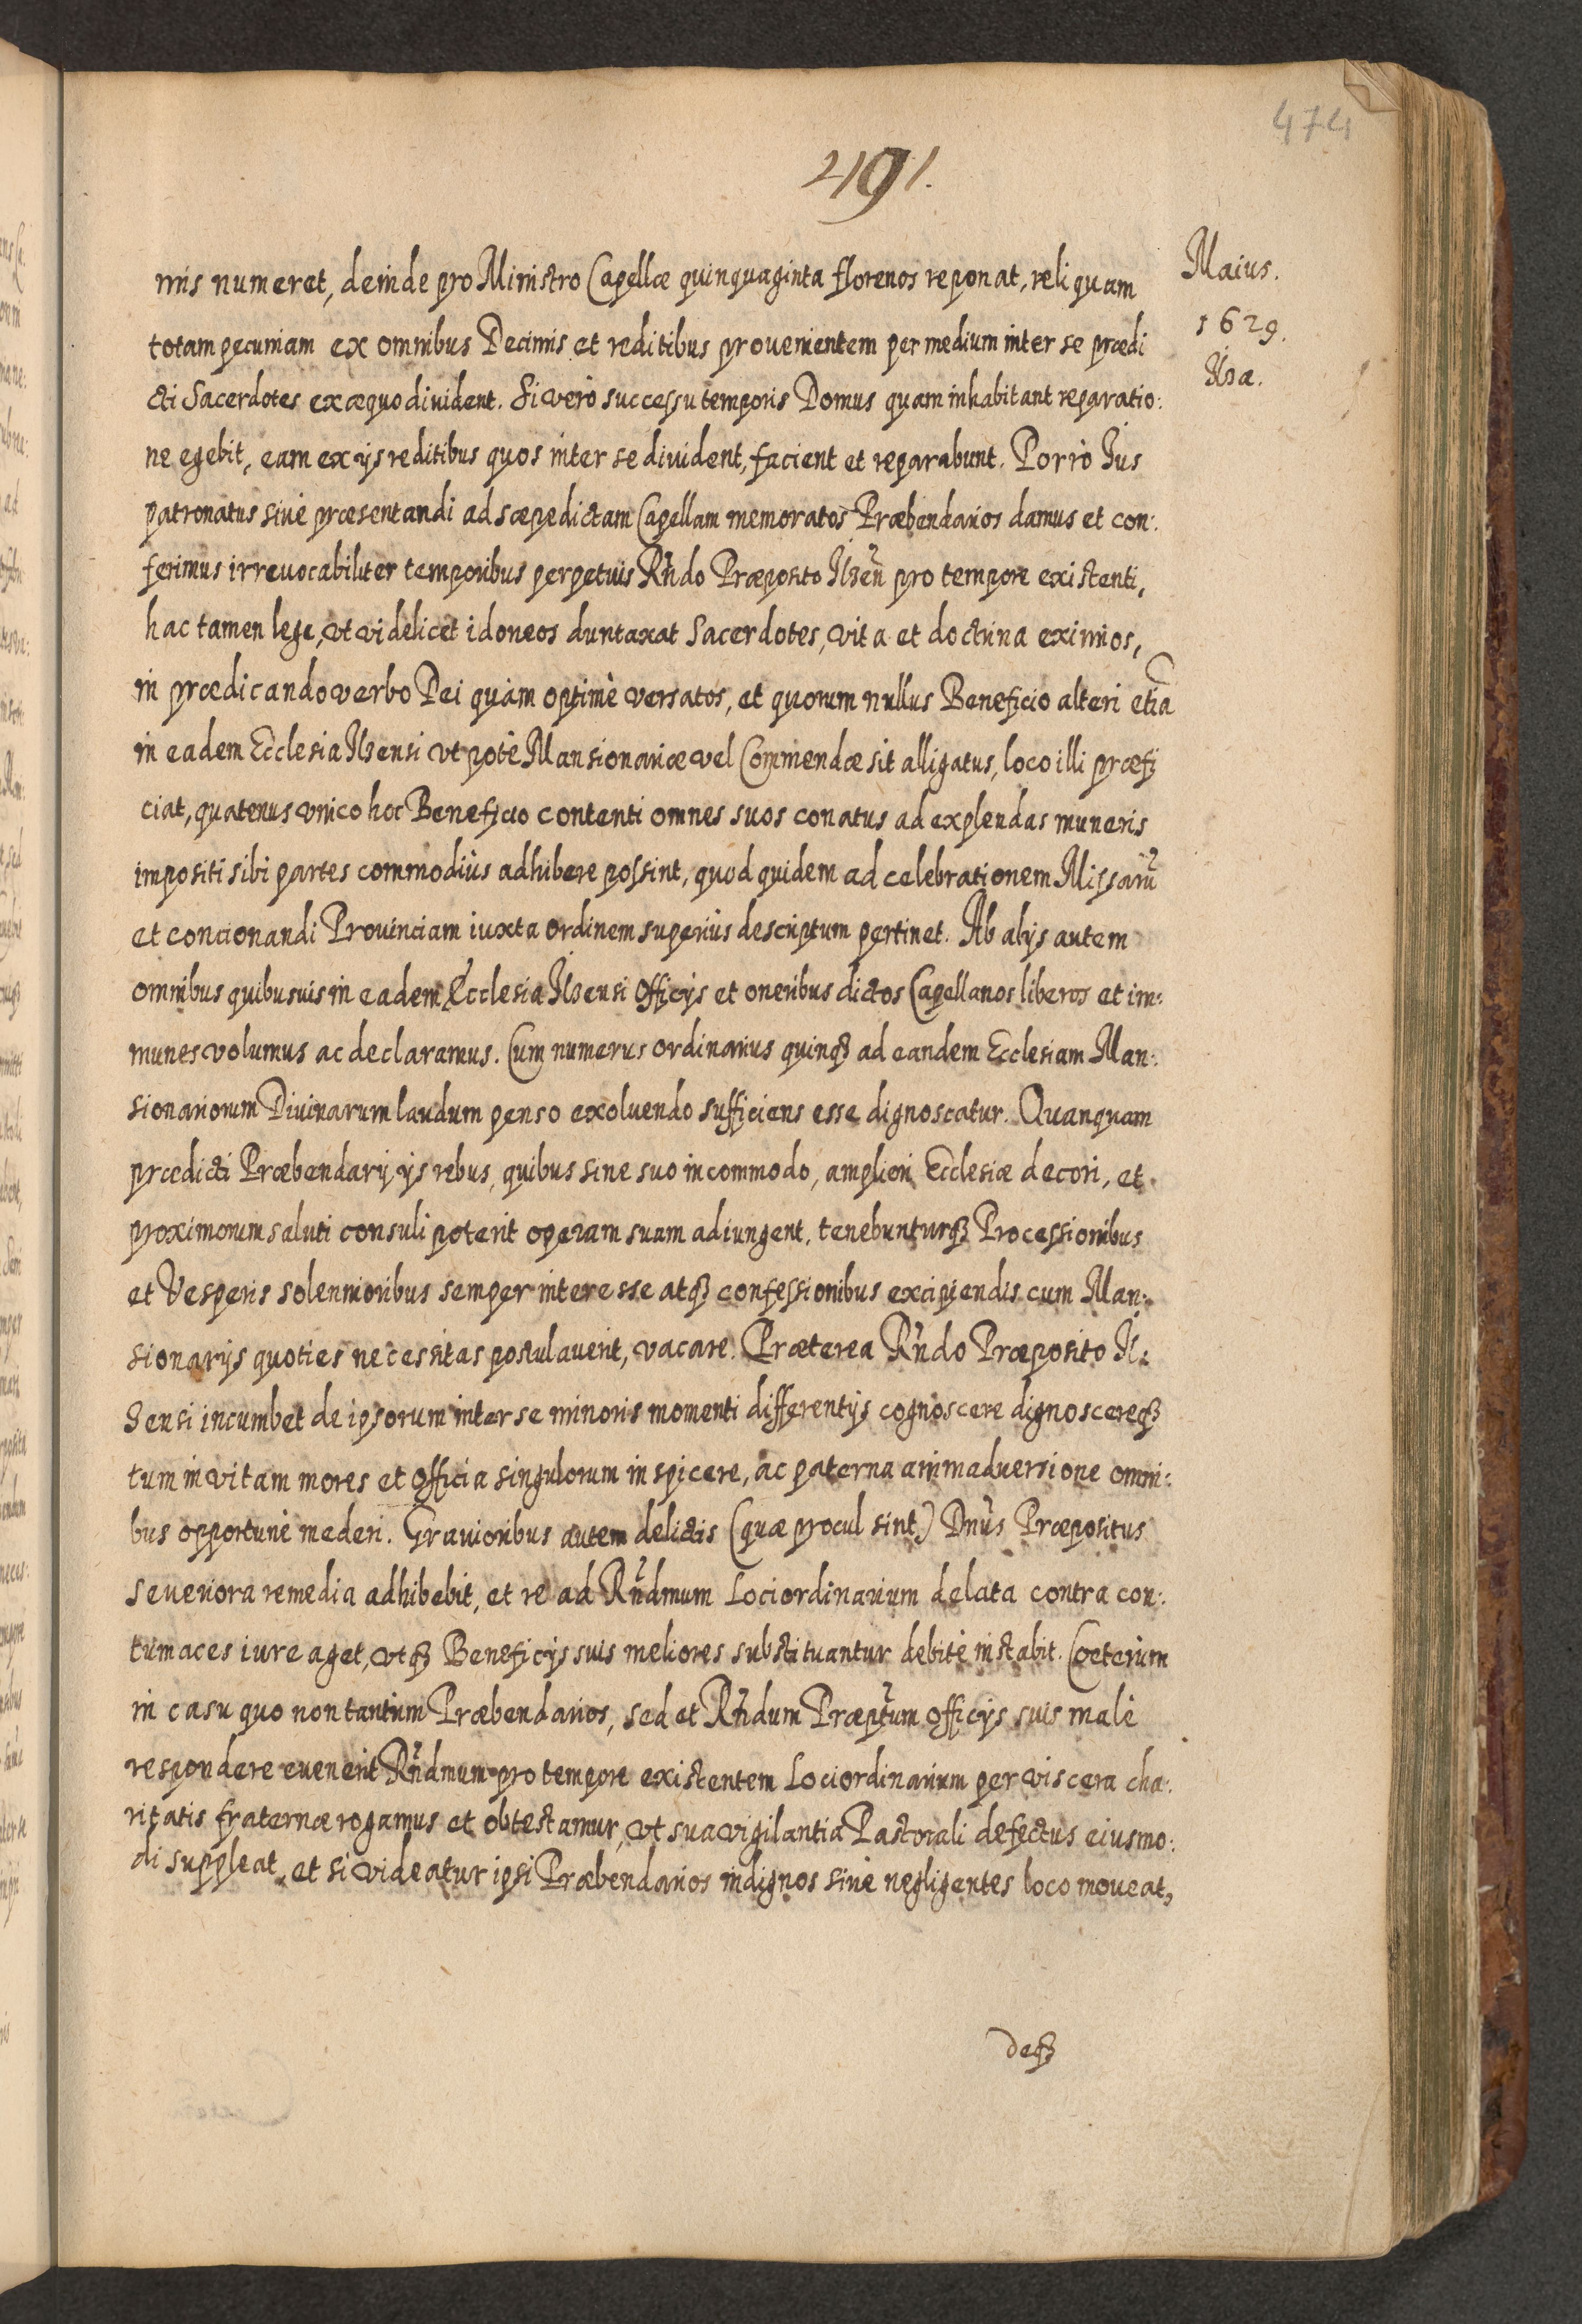 474
491.
Maius.
1629.
Ilza.
nis numeret, deinde pro Ministro Capellæ quinquaginta florenos reponat, reliquam
totam pecuniam ex omnibus Decimis et reditibus prouenientem per medium inter se prædi
cti Sacerdotes exæquo diuident. Si verò successu temporis Domus quam inhabitant reparatio:
ne egebit, eam ex ijs reditibus quos inter se diuident, facient et reparabunt. Porrò Jus
patronatus siuè præsentandi ad sæpedictam Capellam memoratos Præbendarios damus et con:
ferimus irreuocabiliter temporibus perpetuis Rndo Præposito Ilzen pro tempore existenti,
hac tamen lege, vt videlicet idoneos duntaxat Sacerdotes, vita et doctrina eximios,
in prædicando verbo Dei quàm optimè versatos, et quorum nullus Beneficio alteri etia
in eadem Ecclesia Ilzensi vt potè Mansionariæ vel Commendæ sit alligatus, loco illi præfi
ciat, quatenus vnico hoc Beneficio contenti omnes suos conatus ad explendas muneris
impositi sibi partes commodiùs adhibere possint, quod quidem ad celebrationem Missaru
et concionandi Prouinciam iuxta ordinem superiùs descriptum pertinet. Ab alijs autem
omnibus quibusuis in eadem Ecclesia Ilzensi officijs et oneribus dictos Capellanos liberos et im:
munes volumus ac declaramus. Cum numerus ordinarius quinqȝ ad eandem Ecclesiam Man:
sionariorum Diuinarum laudum penso exoluendo sufficiens esse dignoscatur. Quanquam
prædicti Præbendarij ijs rebus, quibus sine suo incommodo, ampliori Ecclesiæ decori, et
proximorum saluti consuli poterit operam suam adiungent, tenebunturqȝ Processionibus
et Vesperis solennioribus semper interesse atqȝ confessionibus excipiendis cum Man:
sionarijs quoties necessitas postulauerit, vacare. Præterea Rndo Præposito Il:
zensi incumbet de ipsorum inter se minoris momenti differentijs cognoscere dignoscereqȝ
tum in vitam mores et officia singulorum inspicere, ac paterna animaduersione omni:
bus opportunè mederi. Grauioribus autem delictis (quæ procul sint) Dnus Præpositus
seueriora remedia adhibebit, et re ad Rndmum Lociordinarium delata contra con:
tumaces iure aget, vtqȝ Beneficijs suis meliores substituantur debitè instabit. Cæterùm
in casu quo non tantùm Præbendarios, sed et Rndum Præptum officijs suis malè
respondere euenerit Rndmum pro tempore existentem Lociordinarium per viscera cha:
ritatis fraternæ rogamus et obtestamur, vt sua vigilantia Pastorali defectus eiusmo:
di suppleat, et si videatur ipsi Præbendarios indignos siuè negligentes loco moueat,
deqȝ